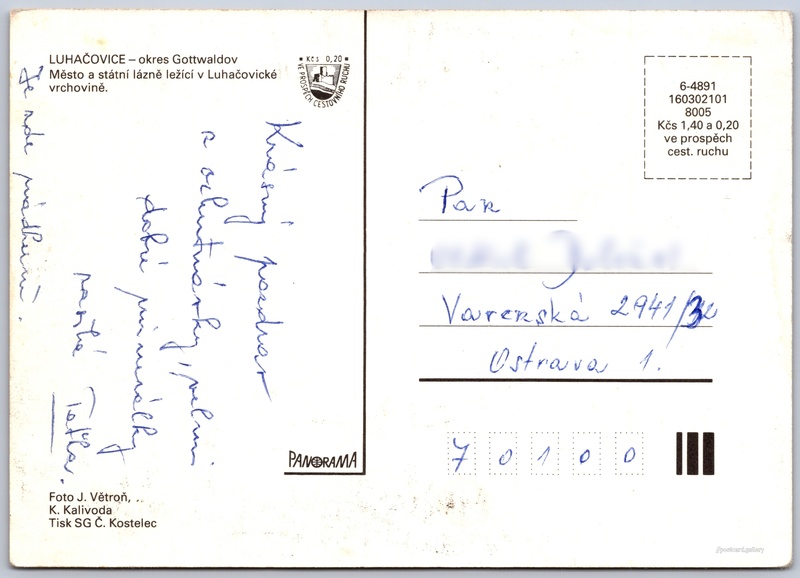 LUHAČOVICE – okres Gottwaldov
Město a státní lázně ležící v Luhačovické
vrchovině.
Kčs 0,20
VE PROSPĚCH CESTOVNÍHO RUCHU
Krásný pozdrav
z ochutnávky velmi
dobré minerálky
Taťka.
Je zde nádherně.
PANORAMA
Foto J. Větroň,
K. Kalivoda
Tisk SG Č. Kostelec
6-4891
160302101
8005
Kčs 1,40 a 0,20
ve prospěch
cest. ruchu
Pan
Varenská 2941/32
Ostrava 1.
70100